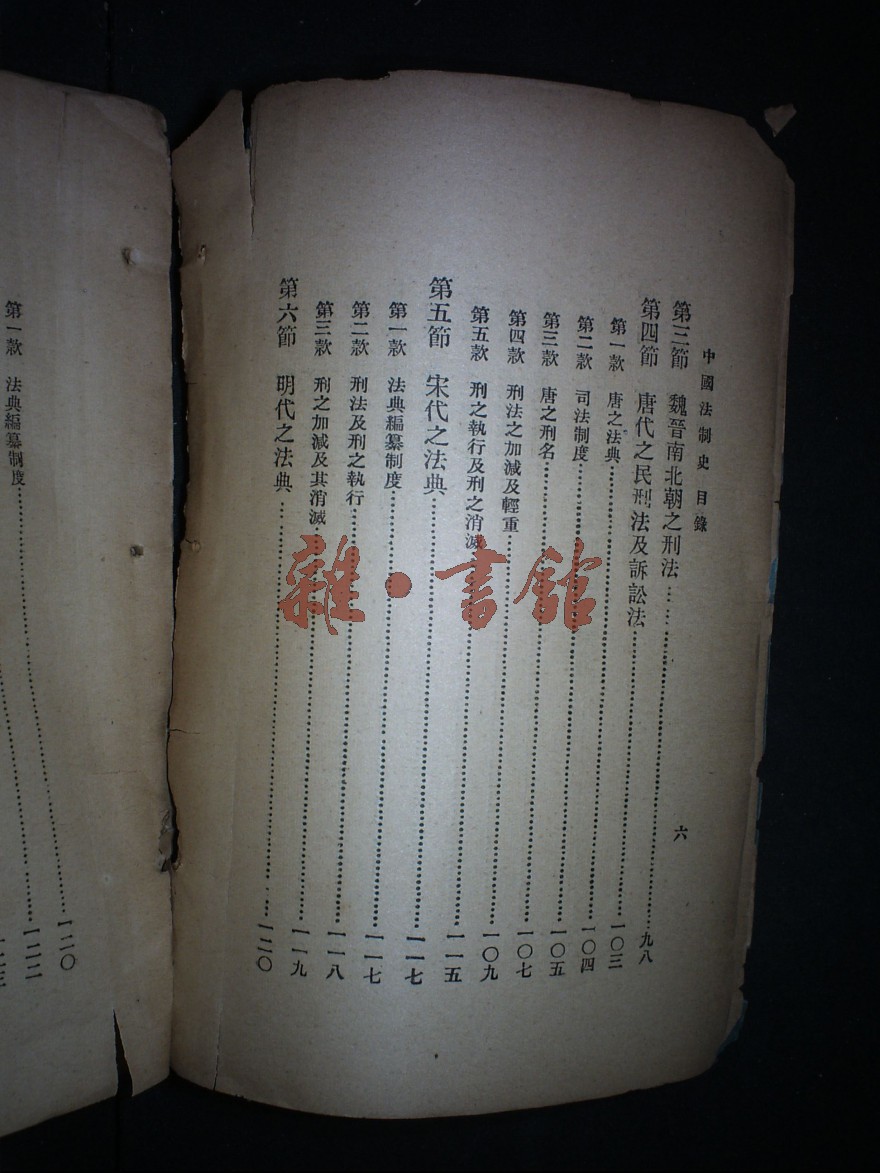 中國法制史 目錄 六
第三節 魏晉南北朝之刑法……九八
第四節 唐代之民刑法及訴訟法……一〇三
第一款 唐之法典……一〇四
第二款 司法制度……一〇五
第三款 唐之刑名……一〇七
第四款 刑法之加減及輕重……一〇九
第五款 刑之執行及刑之消滅……一一五
第五節 宋代之法典……一一七
第一款 法典編纂制度……一一七
第二款 刑法及刑之執行……一一八
第三款 刑之加減及其消滅……一一九
第六節 明代之法典……一二〇
第一款 法典編纂制度……一二〇
一二二
雜·書館